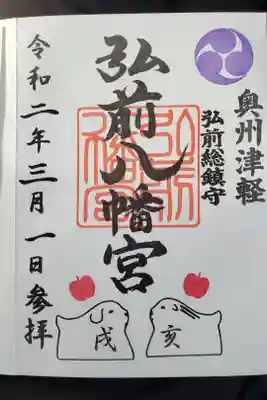 奥州津軽
弘前総鎮守
弘前八幡宮
令和二年三月一日参拝
戌
亥